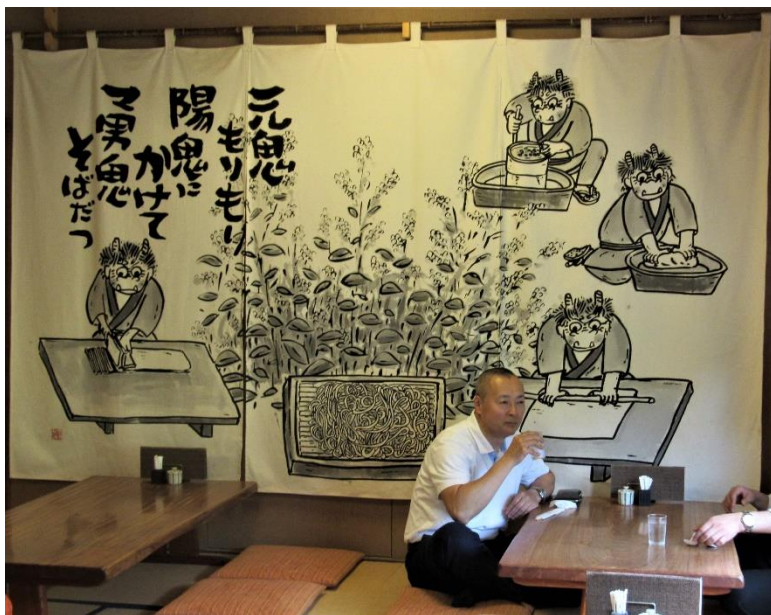 元鬼
もりもり
陽鬼に
かけて
勇鬼
そばだつ